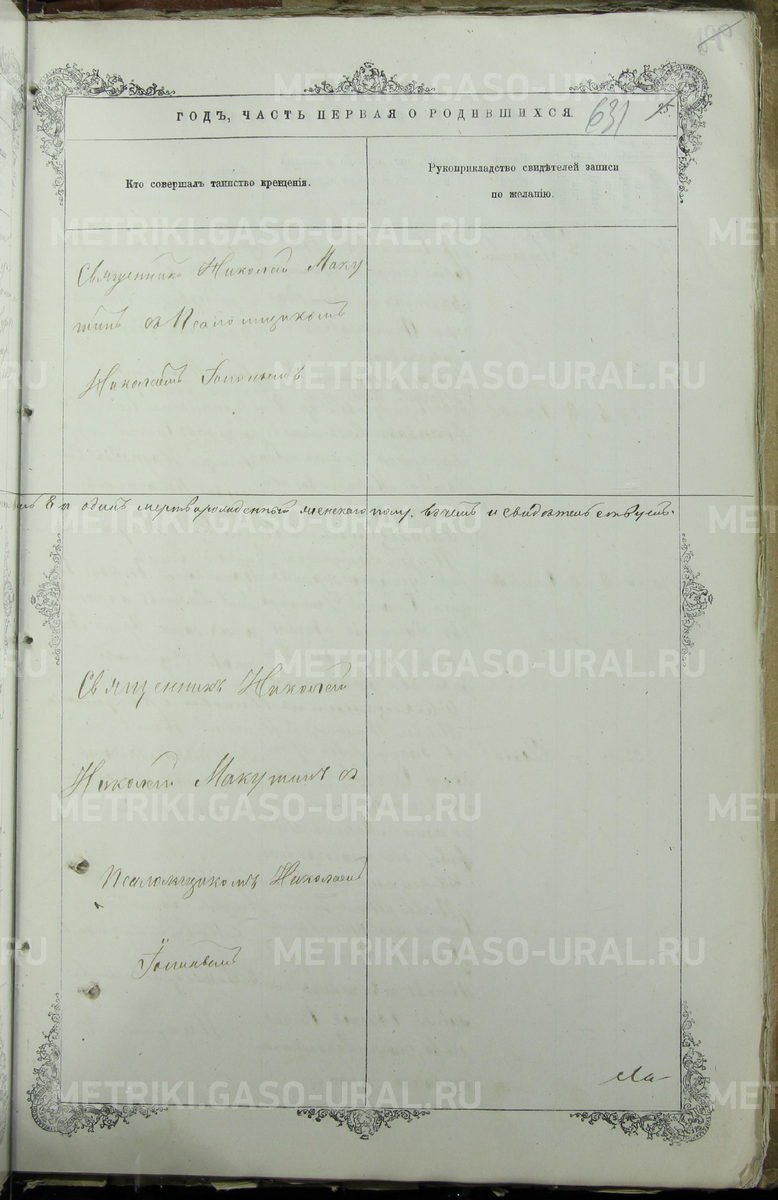 ГОДЪ, ЧАСТЬ ПЕРВАЯ О РОДИВШИХСЯ.
631
Кто совершалъ таинство крещенія.
Рукоприкладство свидѣтелей записи
по желанію.
Священникъ Николай Маку
шинъ съ Псаломщикомъ
Николаемъ
8 и одинъ мертворожденный женскаго полу, въ чемъ и свидѣтельствуемъ.
Священникъ Николай
Николай Макушинъ съ
Псаломщикомъ Николаемъ
METRIKI.GASO-URAL.RU